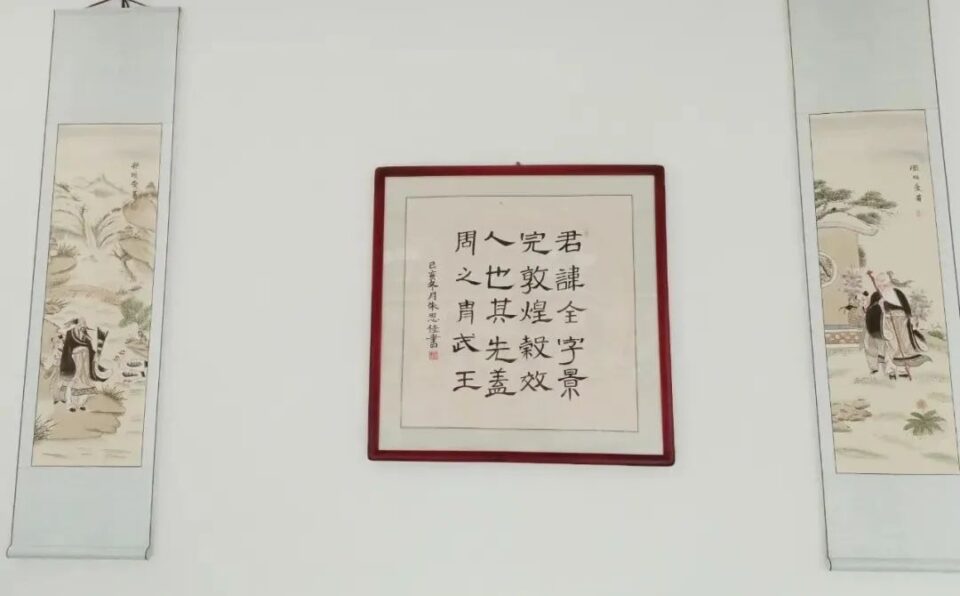 君諱全字景
完敦煌穀效
人也其先盖
周之胄武王
己亥冬月朱思佳書